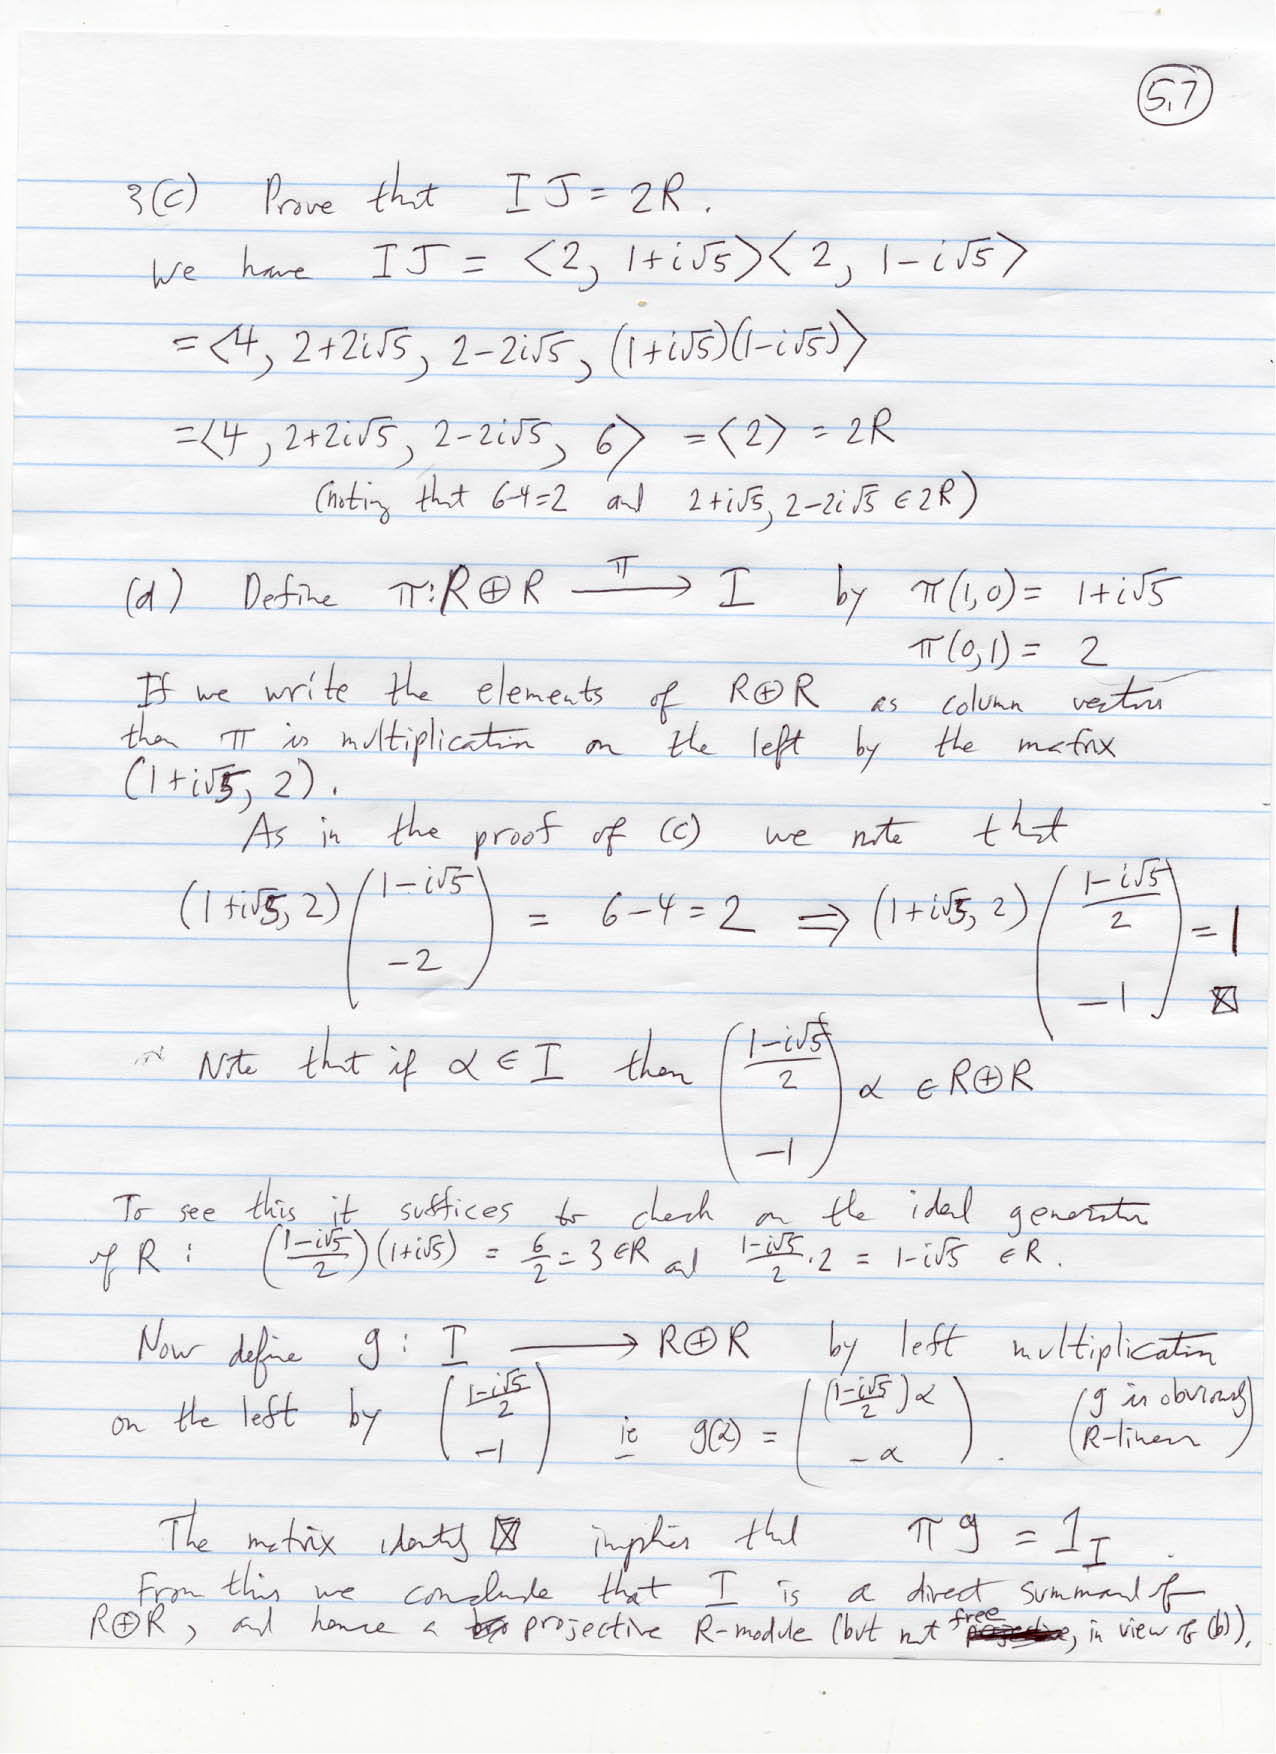 5,7
3(c) Prove that I J = 2R.
We have I J = ⟨2, 1+i√5⟩⟨2, 1-i√5⟩
= ⟨4, 2+2i√5, 2-2i√5, (1+i√5)(1-i√5)⟩
= ⟨4, 2+2i√5, 2-2i√5, 6⟩ = ⟨2⟩ = 2R
(noting that 6-4=2 and 2+i√5, 2-2i√5 ∈ 2R)
(d) Define π: R⊕R —π→ I by π(1,0) = 1+i√5
π(0,1) = 2
If we write the elements of R⊕R as column vectors
then π is multiplication on the left by the matrix
(1+i√5, 2).
As in the proof of (c) we note that
(1+i√5, 2) (1-i√5 / -2) = 6-4 = 2 ⇒ (1+i√5, 2) ((1-i√5)/2 / -1) = 1 ⊠
Note that if α ∈ I then ((1-i√5)/2 / -1) α ∈ R⊕R
To see this it suffices to check on the ideal generators
of R : ((1-i√5)/2)(1+i√5) = 6/2 = 3 ∈ R and (1-i√5)/2 · 2 = 1-i√5 ∈ R.
Now define g : I ⟶ R⊕R by left multiplication
on the left by ((1-i√5)/2 / -1) ie g(α) = (((1-i√5)/2)α / -α). (g is obviously R-linear)
The matrix identity ⊠ implies that π g = 1_I.
From this we conclude that I is a direct summand of
R⊕R, and hence a projective R-module (but not free, in view of (b)).